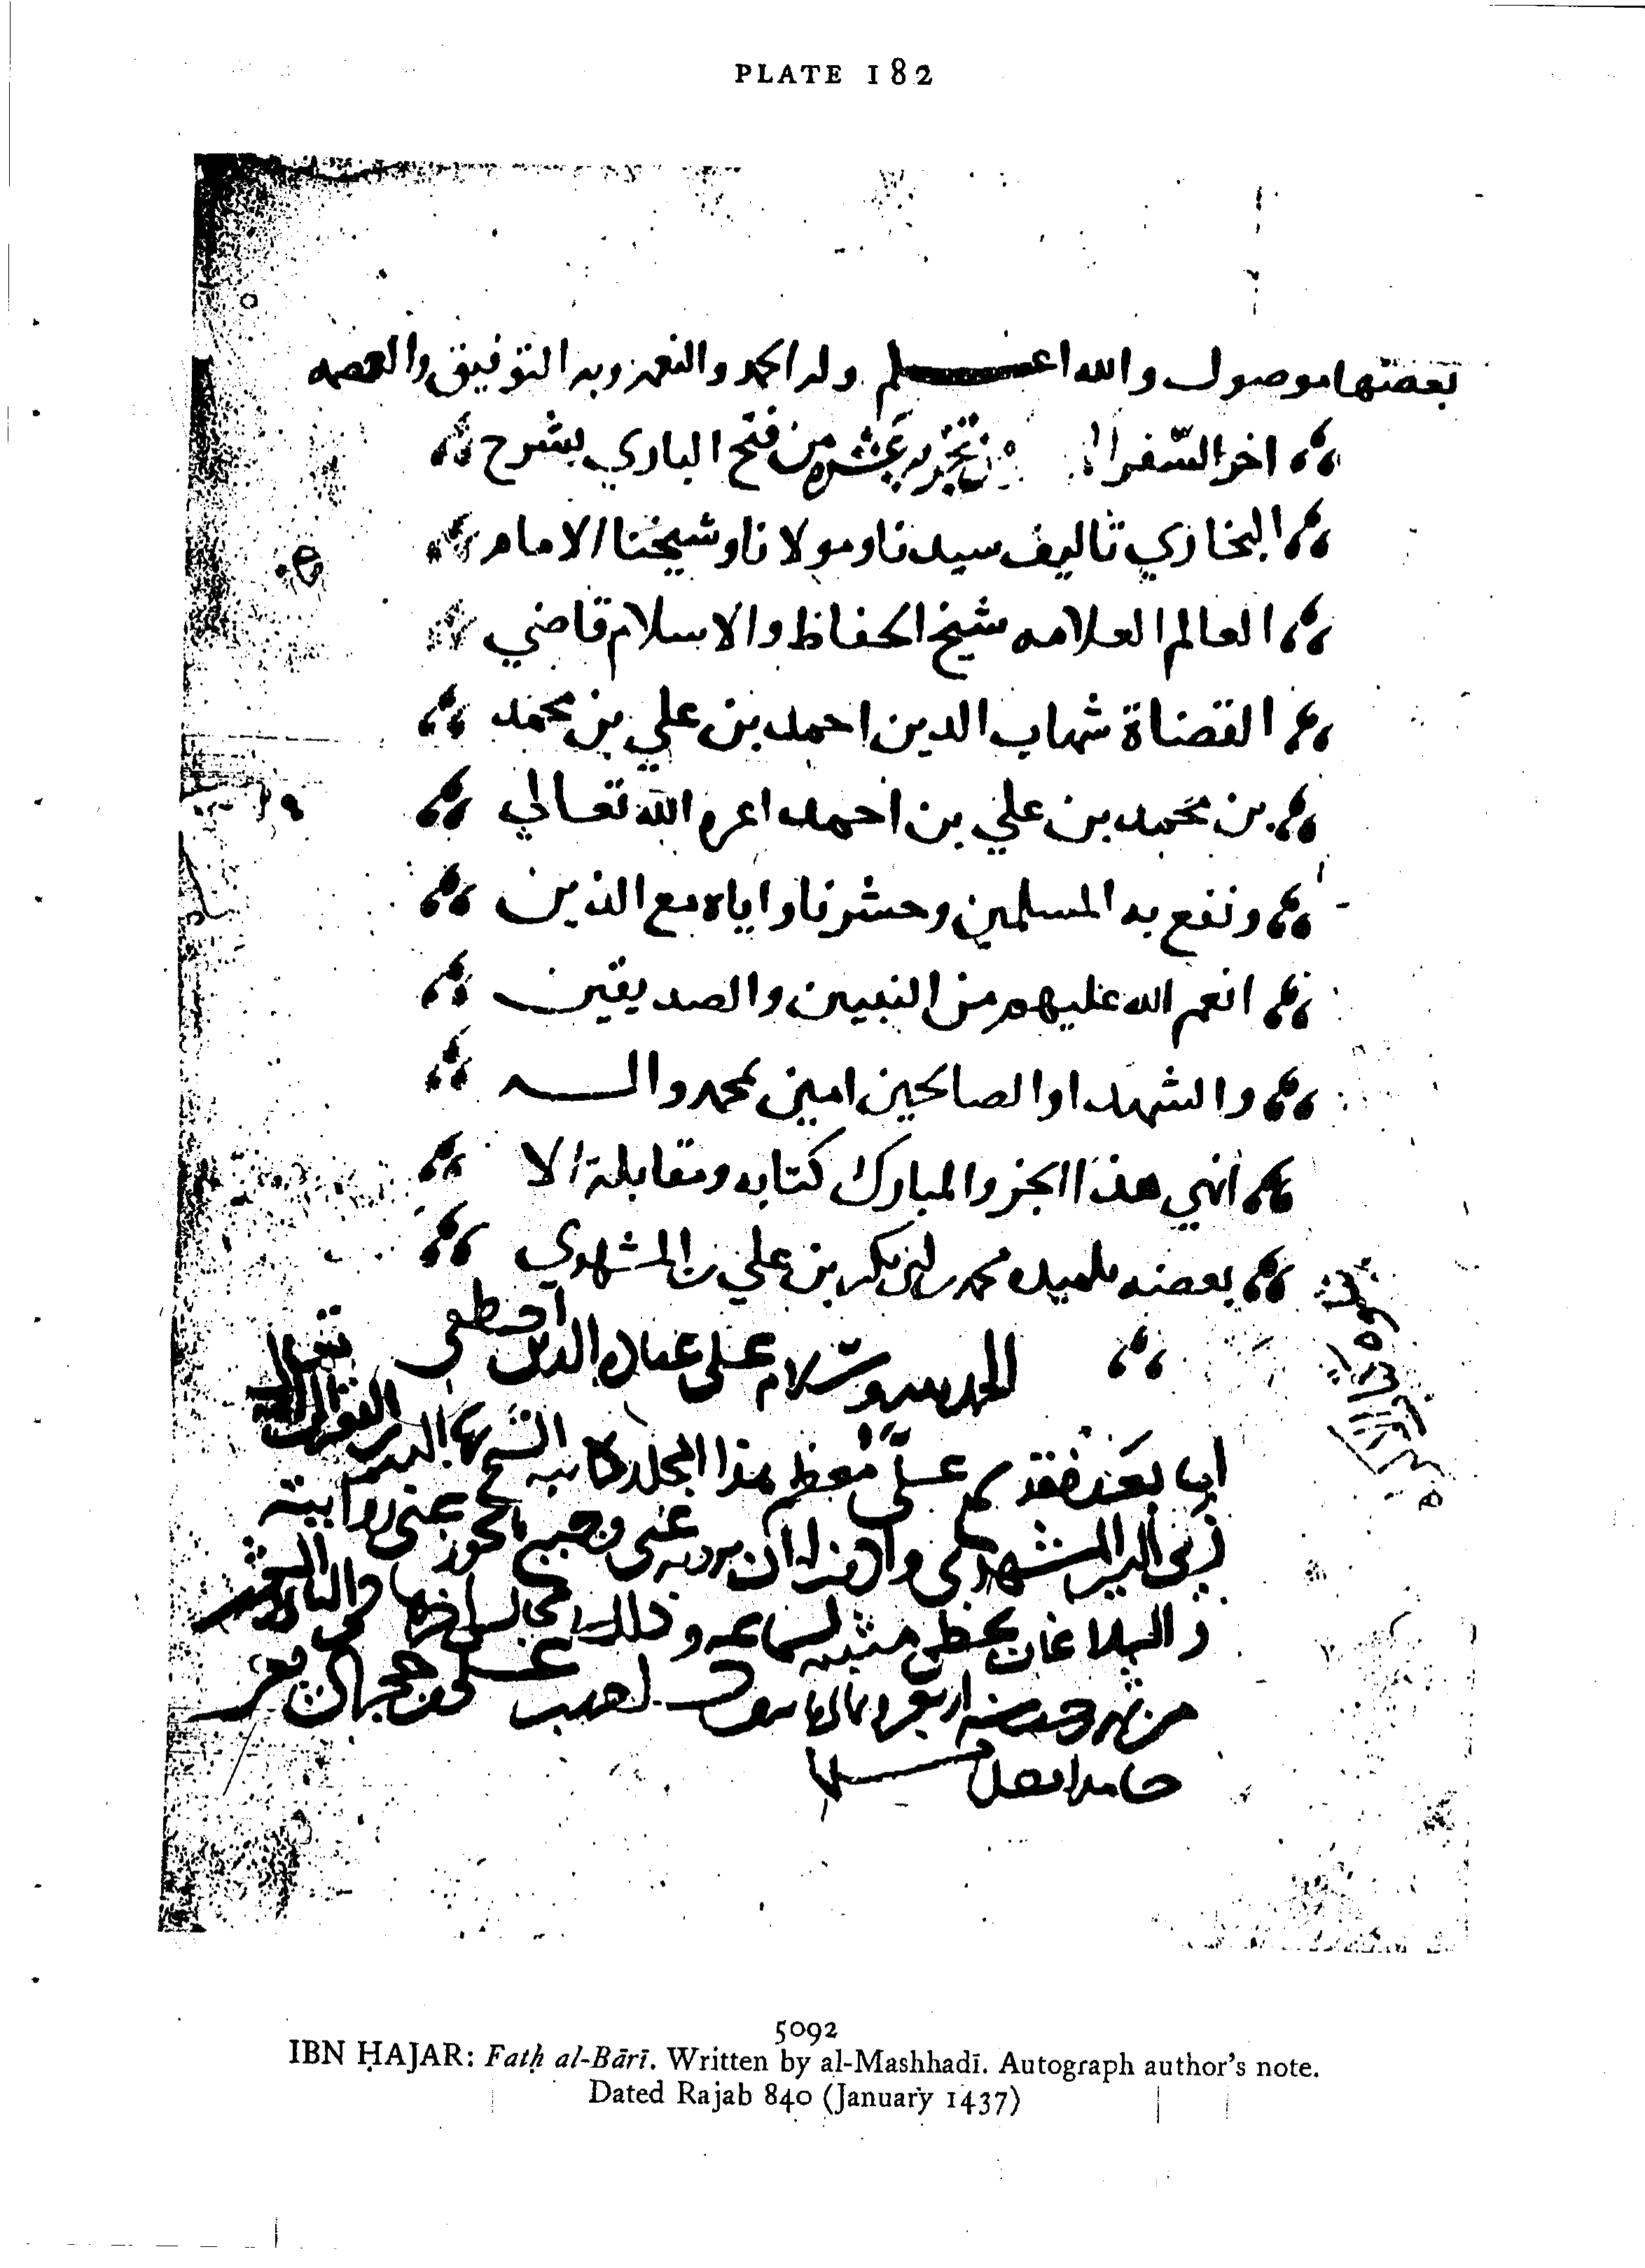 PLATE 182
بعضها موصول والله اعلم وله الحمد والنعمه وبه التوفيق والعصمه
اخر السفر من تجزيه عشره من فتح الباري بشرح
البخاري تاليف سيدنا ومولانا وشيخنا الامام
العالم العلامه شيخ الحفاظ والاسلام قاضي
القضاة شهاب الدين احمد بن علي بن محمد
بن محمد بن علي بن احمد اعزه الله تعالي
ونفع به المسلمين وحشرنا واياه مع الذين
انعم الله عليهم من النبيين والصديقين
والشهدا والصالحين امين بمحمد واله
انهي هذا الجزو المبارك كتابه ومقابلة الا
بعضه تلميذه محمد بن ابي بكر بن علي المشهدي
الحمد لله وسلام على عباده الذين اصطفى
اما بعد فقد قرا علي معظم هذا المجلد كاتبه الشيخ
المشهدي واذنت له ان يرويه عني وجميع ما يجوز عني روايته
البلاغات بخطي مثبته لسماعه وذلك في مجالس اخرها في
من شهر رجب سنه اربعين وثمان مايه وكتب احمد بن علي بن حجر
حامدا مصليا مسلما
5092
IBN ḤAJAR: Fatḥ al-Bārī. Written by al-Mashhadī. Autograph author's note.
Dated Rajab 840 (January 1437)